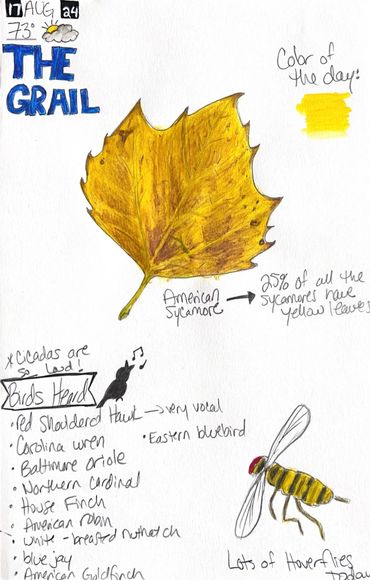 17 AUG 24
73°
THE
GRAIL
Color of
the day:
American
Sycamore
25% of all the
Sycamores have
yellow leaves
*Cicadas are
so loud!
Birds Heard
• Red Shouldered Hawk → very vocal
• Carolina wren
• Eastern bluebird
• Baltimore Oriole
• Northern Cardinal
• House Finch
• American robin
• white-breasted nuthatch
• blue jay
• American Goldfinch
Lots of Hoverflies
Today